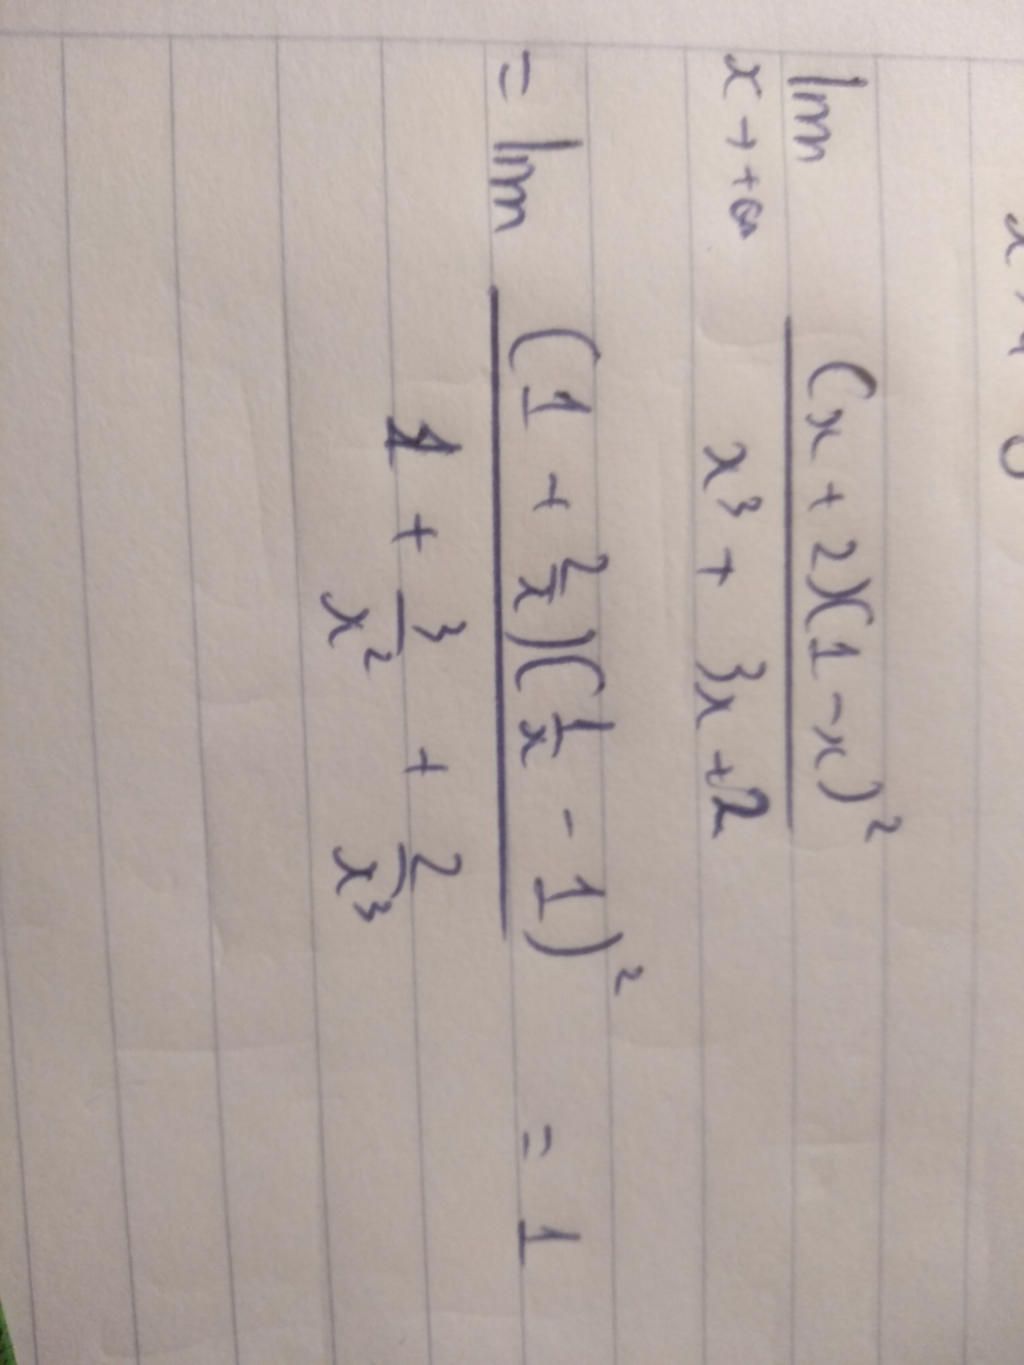 lim (x + 2)(1 - x)²
x → +∞ x³ + 3x + 2
= lim (1 + 2/x)(1/x - 1)² = 1
1 + 3/x² + 2/x³